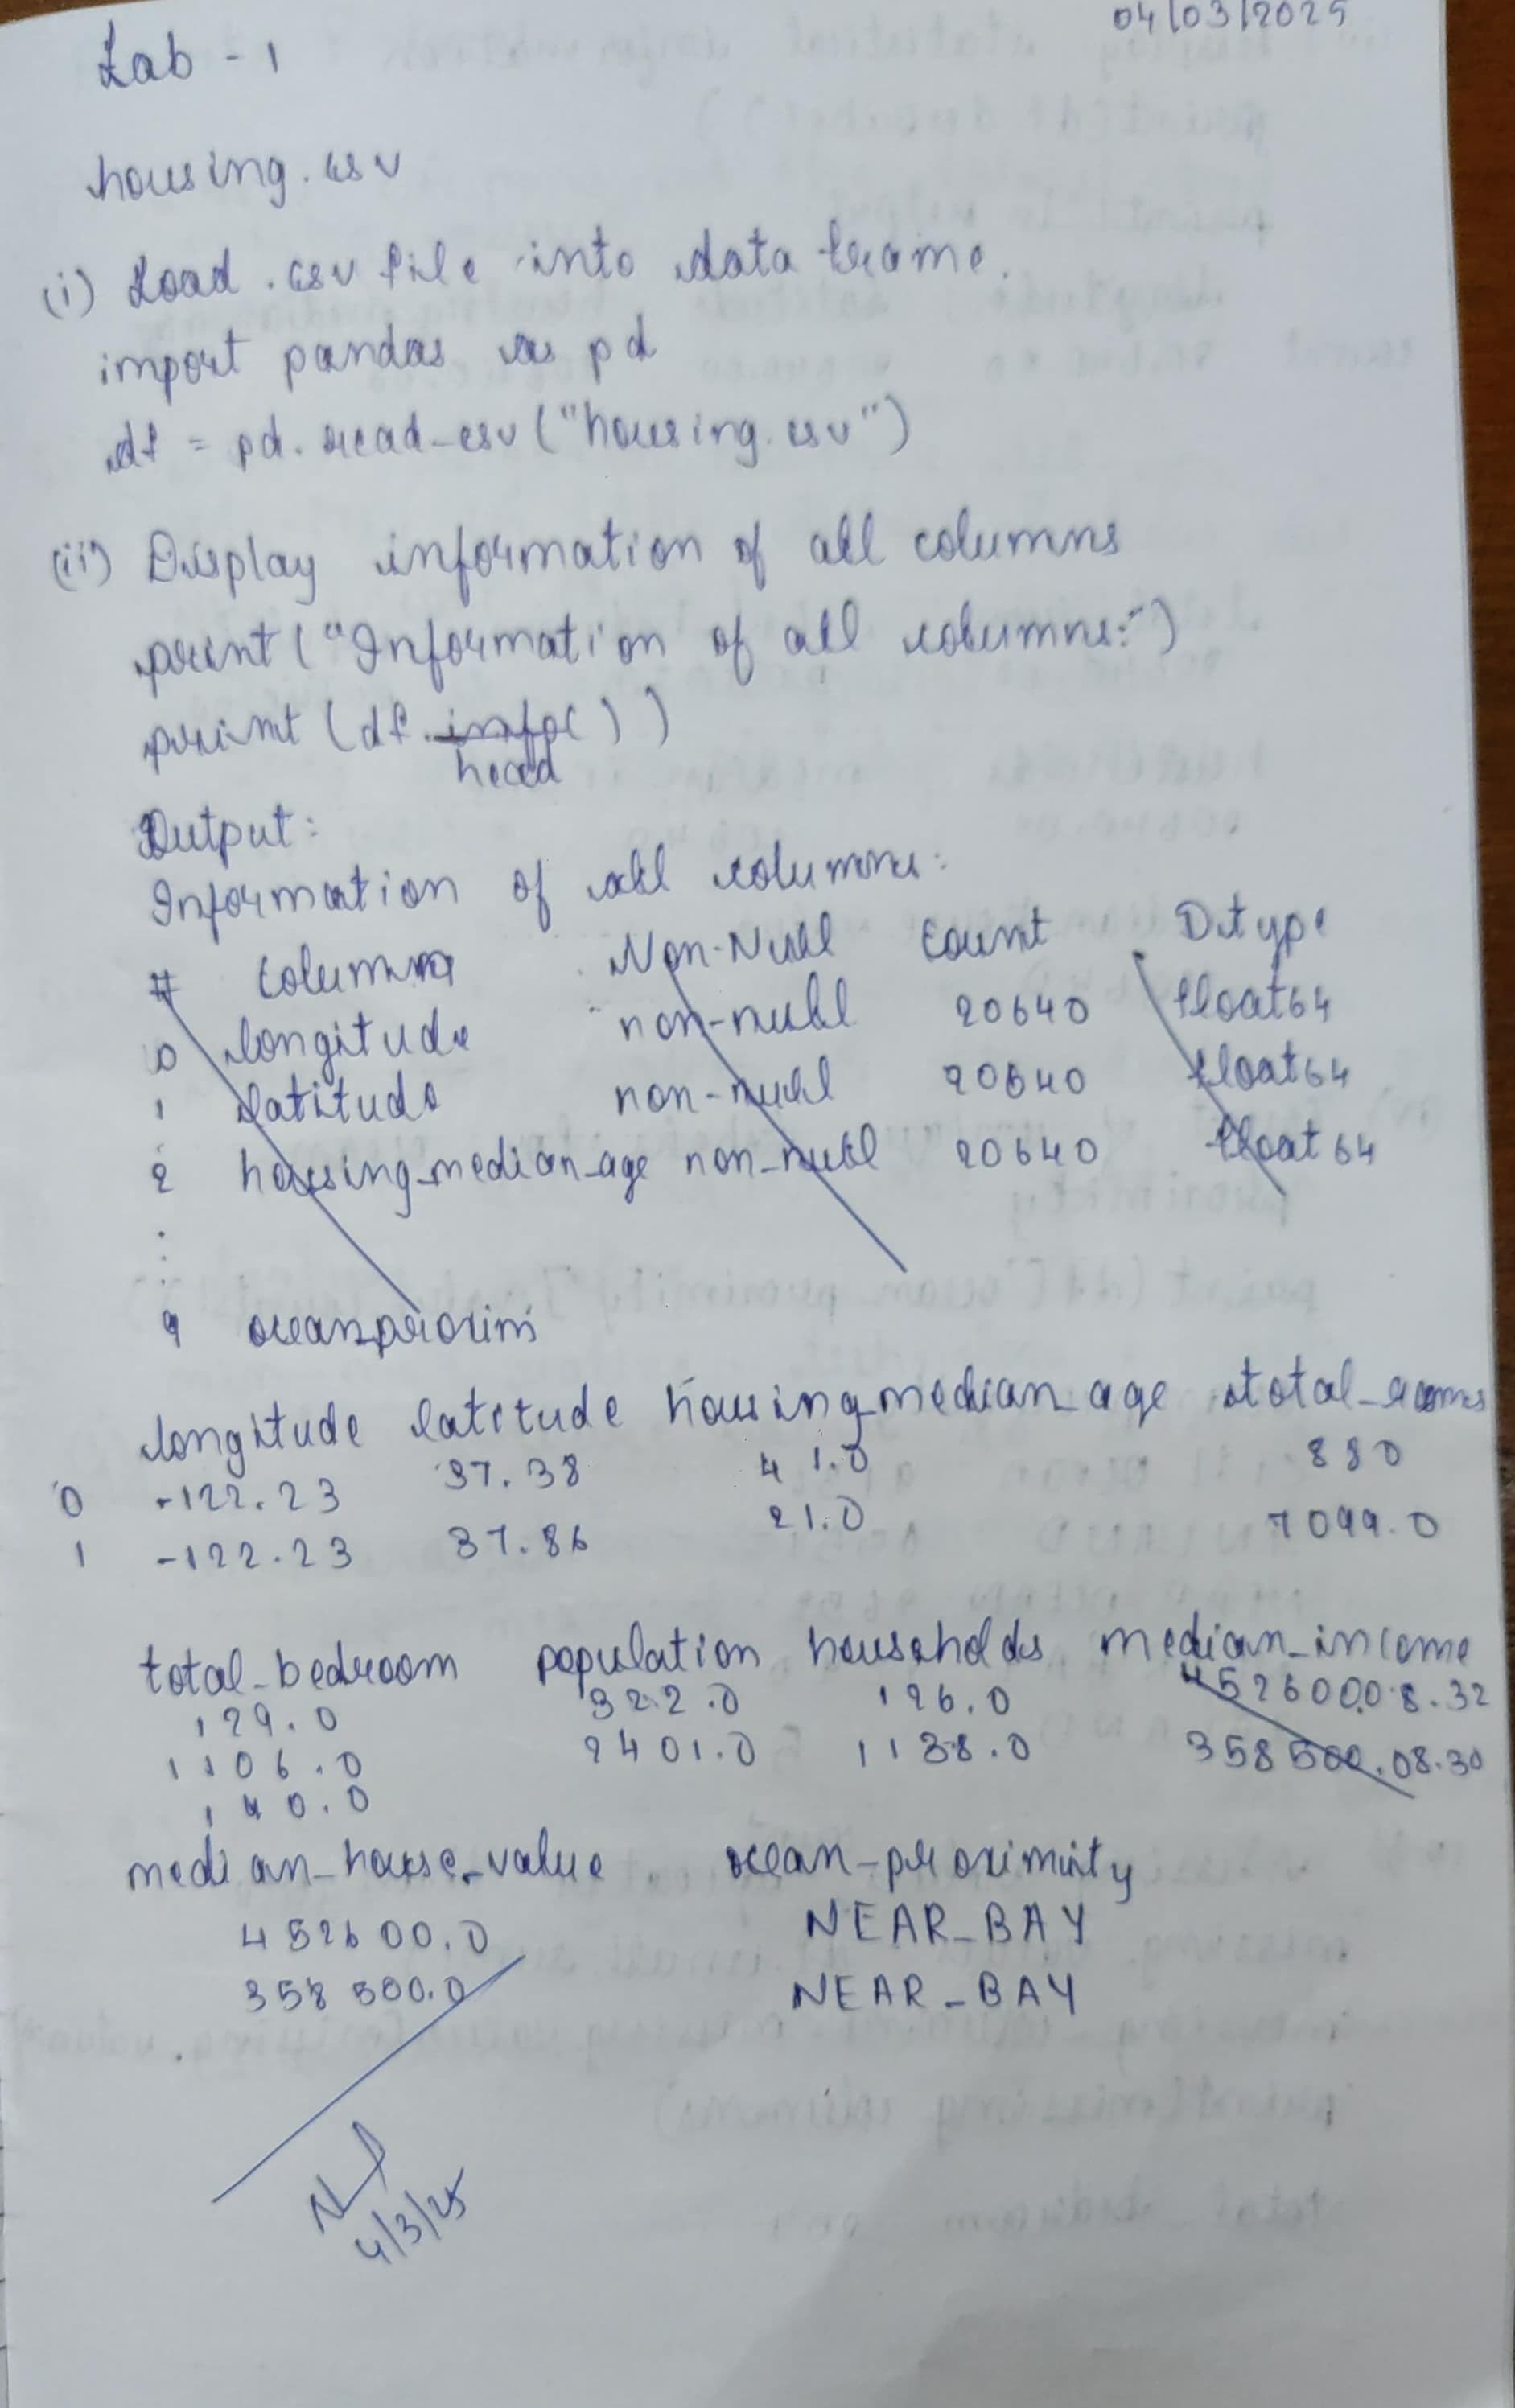 04/03/2025
Lab - 1
housing.csv
(i) Load .csv file into data frame.
import pandas as pd
df = pd.read_csv("housing.csv")
(ii) Display information of all columns
print("Information of all columns:")
print(df.info())
head
Output:
Information of all columns:
# Column Non-Null Count Dtype
0 longitude non-null 20640 float64
1 latitude non-null 20640 float64
2 housing_median_age non-null 20640 float64
:
9 ocean_proximi
longitude latitude housing_median_age total_rooms
0 -122.23 37.38 41.0 880
1 -122.23 37.86 21.0 7099.0
total_bedroom population households median_income
129.0 322.0 126.0 452600.0 8.32
1106.0 2401.0 1138.0 358500.0 8.30
190.0
median_house_value ocean_proximity
452600.0 NEAR_BAY
358500.0 NEAR_BAY
4/3/25